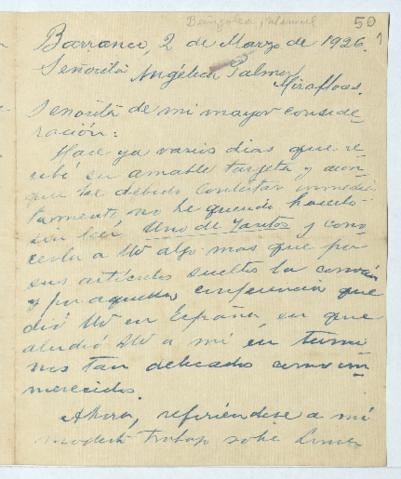 Beingolea, Manuel
50
Barranco, 2 de Marzo de 1926.
Señorita Angélica Palma
Miraflores.
Señorita de mi mayor conside-
ración:
Hace ya varios dias que re-
cibí su amable tarjeta y aun-
que he debido contestar inmedia-
tamente, no he querido hacerlo
sin leer Uno de Tantos y cono-
cerla a Ud algo mas que por
sus artículos sueltos la conocía
y por aquella conferencia que
dió Ud en España en que
aludió Ud a mí en térmi-
nos tan delicados como in-
merecidos.
Ahora, refiriéndose a mi
modesto trabajo sobre Lima